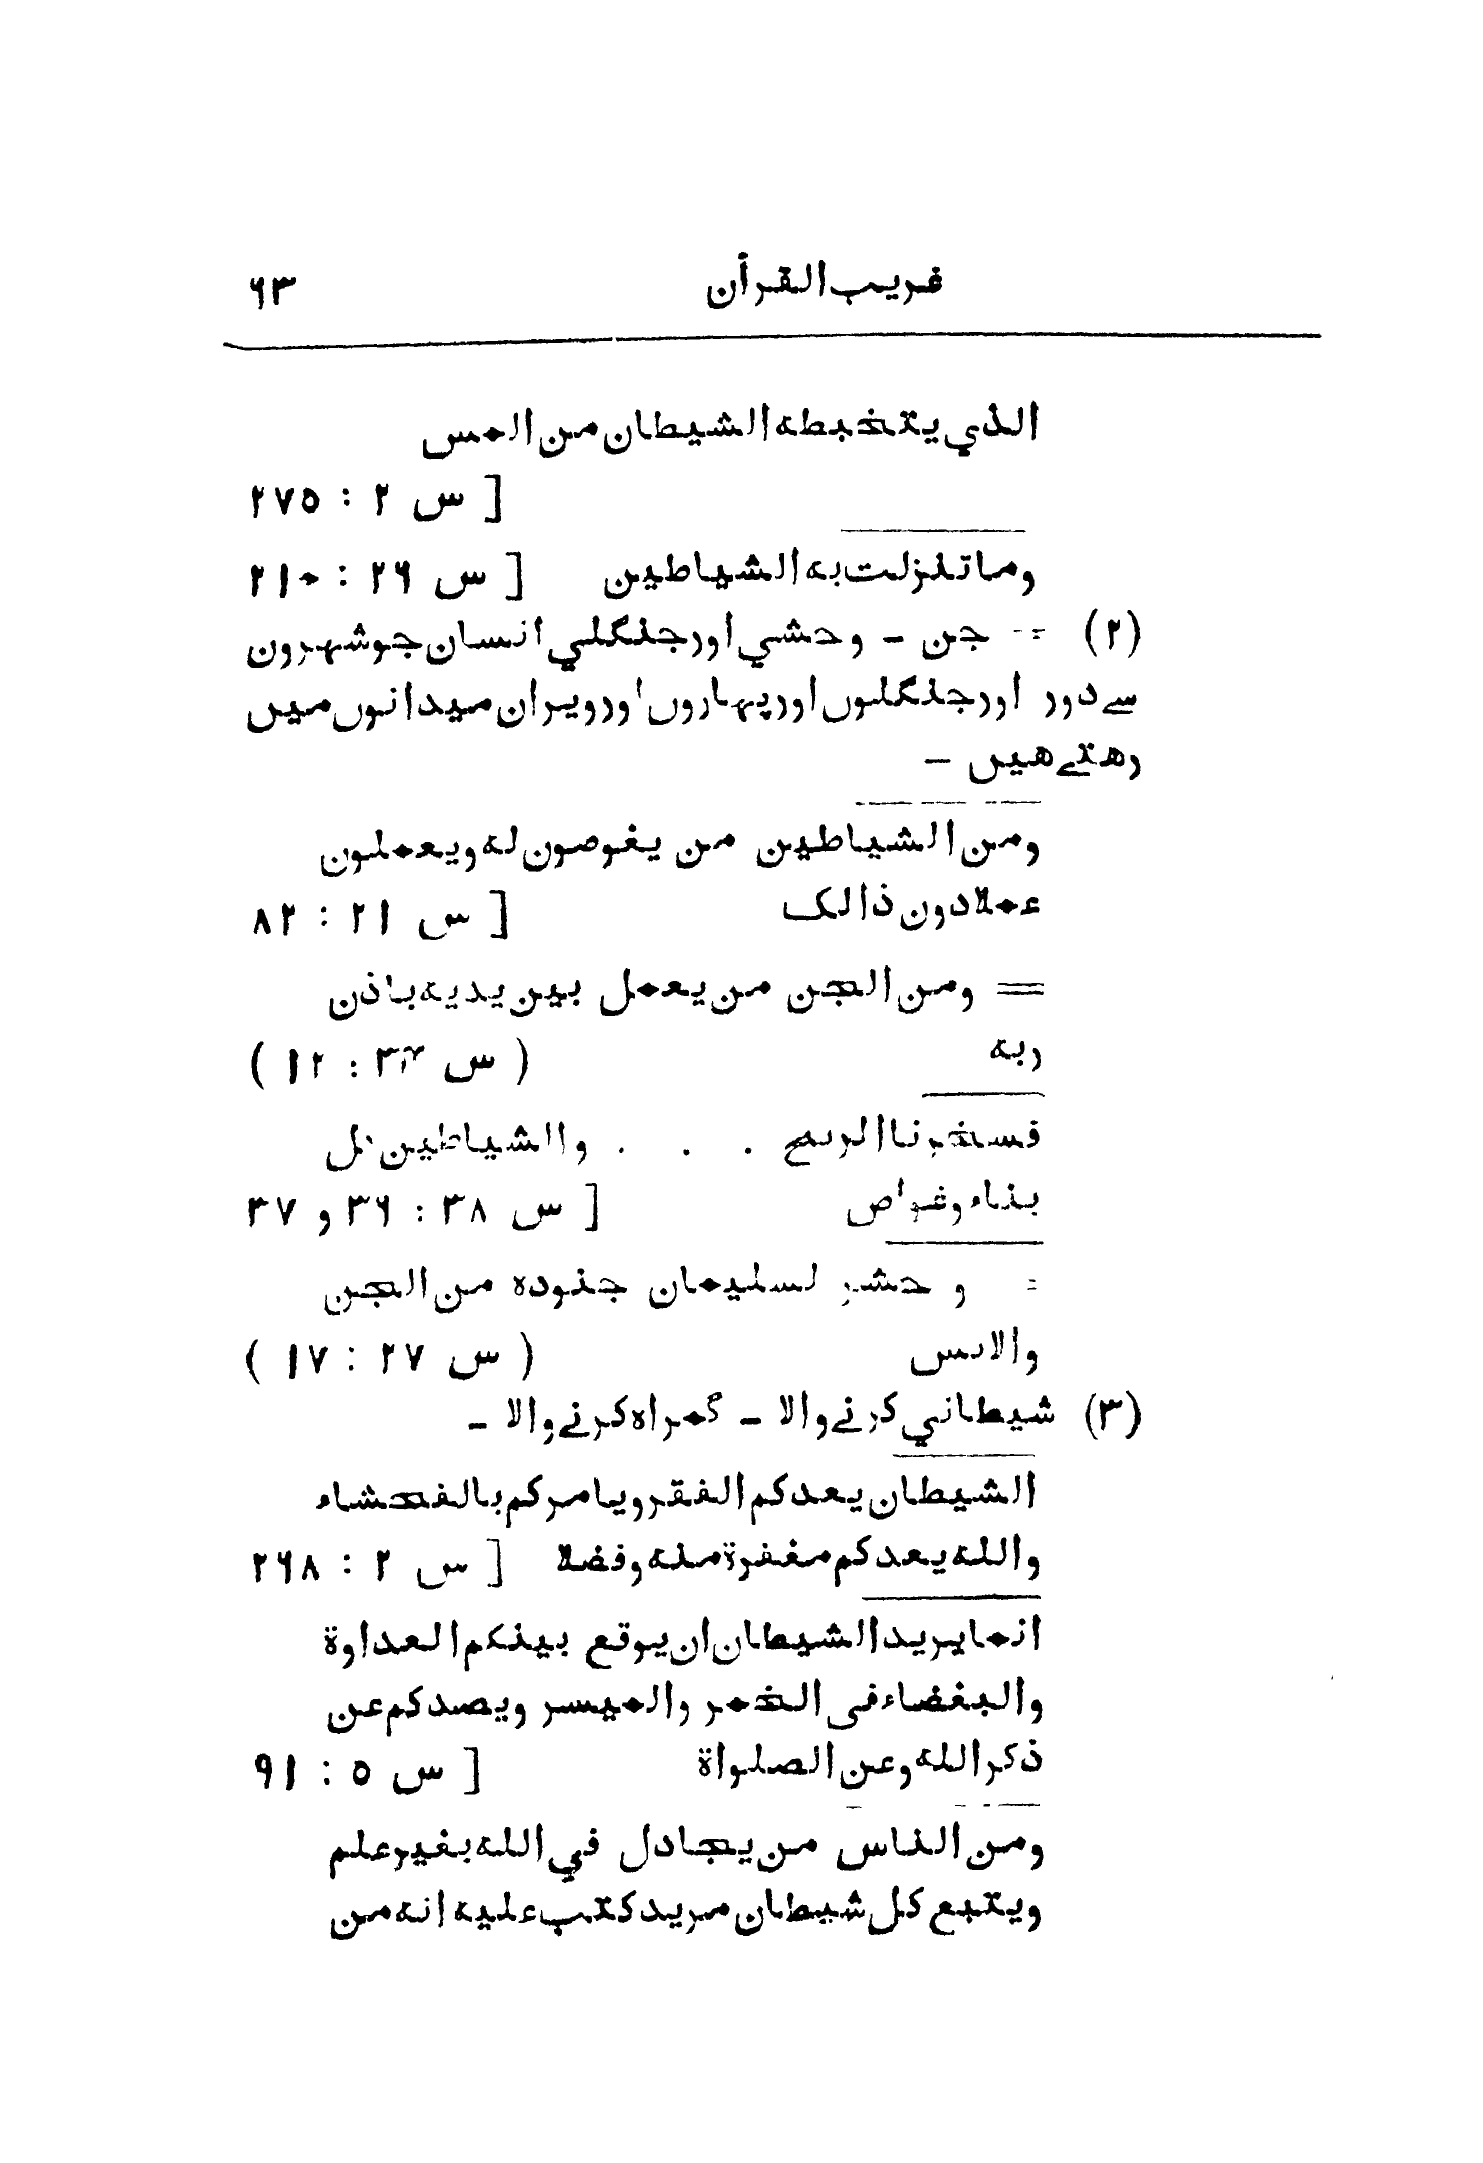 غریب القرآن ۶۳
الذي يتخبطه الشيطان من المس
[ س ۲ : ۲۷۵
وما تنزلت به الشياطين [ س ۲۶ : ۲۱۰
(۲) = جن - وحشي اور جنگلي انسان جو شهرون
سے دور اور جنگلوں اور پہاروں اور ویران میدانوں میں
رهتے هیں -
ومن الشياطين من يغوصون له ويعملون
عملا دون ذالک [ س ۲۱ : ۸۲
= ومن الجن من يعمل بين يديه باذن
ربه ( س ۳۴ : ۱۲ )
فسخرنا الريح . . . والشياطين كل
بناء وغواص [ س ۳۸ : ۳۶ و ۳۷
= و حشر لسليمان جنوده من الجن
والانس ( س ۲۷ : ۱۷ )
(۳) شيطاني کرنے والا - گمراه کرنے والا -
الشيطان يعدكم الفقر ويامركم بالفحشاء
والله يعدكم مغفرة منه وفضلا [ س ۲ : ۲۶۸
انما يريد الشيطان ان يوقع بينكم العداوة
والبغضاء فى الخمر والميسر ويصدكم عن
ذكر الله وعن الصلواة [ س ۵ : ۹۱
ومن الناس من يجادل في الله بغير علم
ويتبع كل شيطان مريد كتب عليه انه من